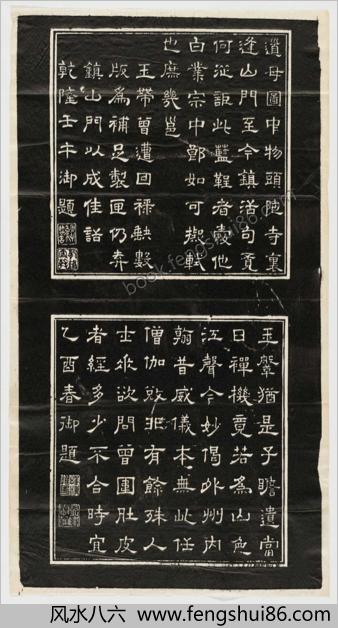 遺母圖中物頭陀寺裏
逢山門至今鎮活句
何從詎此藍鞓者他
白業宗中鄭如可起軾
也庶幾豈
玉帶曾遭回祿缺數
版為補足製匣仍弆
鎮山門以成佳話
乾隆壬午御題
玉鞶猶是子瞻遺當
日禪機竟若為山色
江聲今妙偈外州內
翰昔威儀本無此任
僧伽敚非有餘殊人
士欲問曾圍肚皮
者經多少不合時宜
乙酉春御題
book.fengshui86.com
风水八六 - www.fengshui86.com